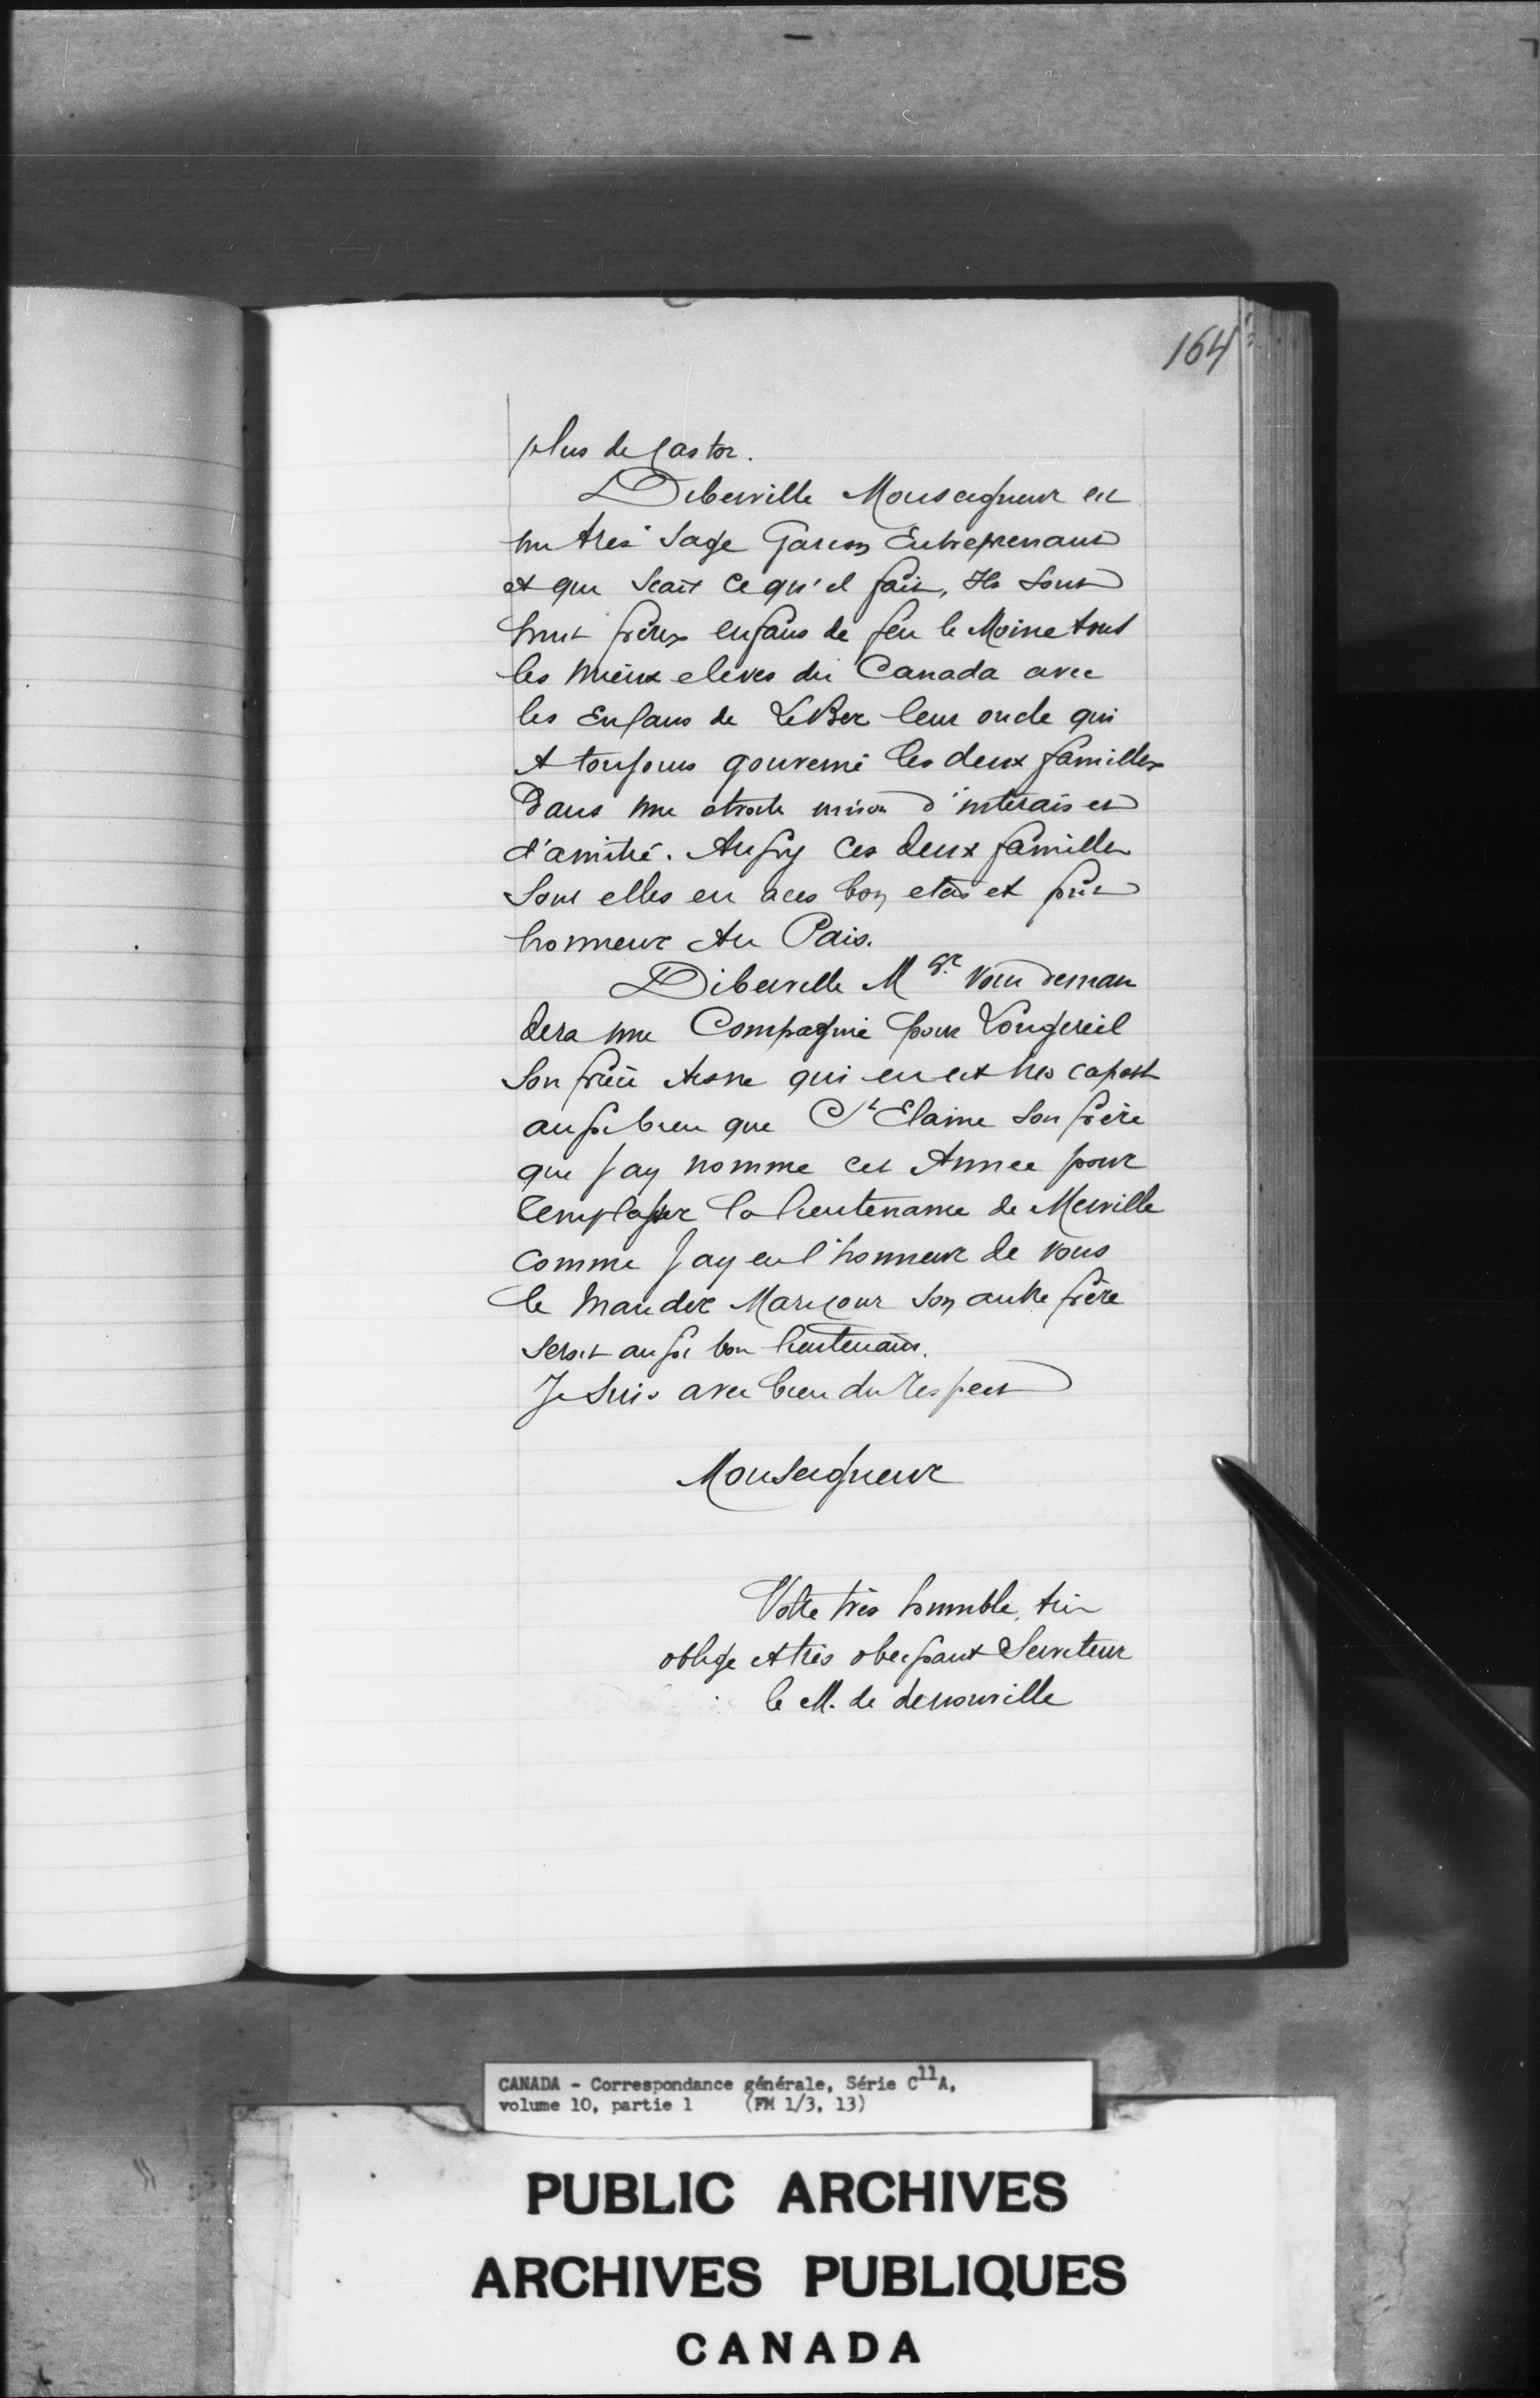 164
plus de Castor.
Diberville Monseigneur est
un tres sage Garcon Entreprenant
et qui scait ce qu'il fait, Ils sont
huit frères enfans de feu le Moine tous
les mieux eleves du Canada avec
les Enfans de LeBer leur oncle qui
A toujours gouverné les deux familles
Dans une etroite union d'interais et
d'amitié. Aussy ces deux familles
Sont elles en aces bon etat et font
honneur Au Pais.
Diberville Mgr. vous deman
dera une Compagnie pour Longueil
Son frère Aisne qui en est tres capable
aussi bien que St Elaine son frère
que Jay nomme cet Annee pour
remplasser la lieutenance de Merville
comme Jay eu l'honneur de vous
le mander Maricour son autre frère
seroit aussi bon lieutenant.
Je suis avec bien du respect
Monseigneur
Votre très humble, très
oblige et très obeissant Serviteur
le M. de denonville
CANADA - Correspondance générale, Série C11A,
volume 10, partie 1 (FM 1/3, 13)
PUBLIC ARCHIVES
ARCHIVES PUBLIQUES
CANADA